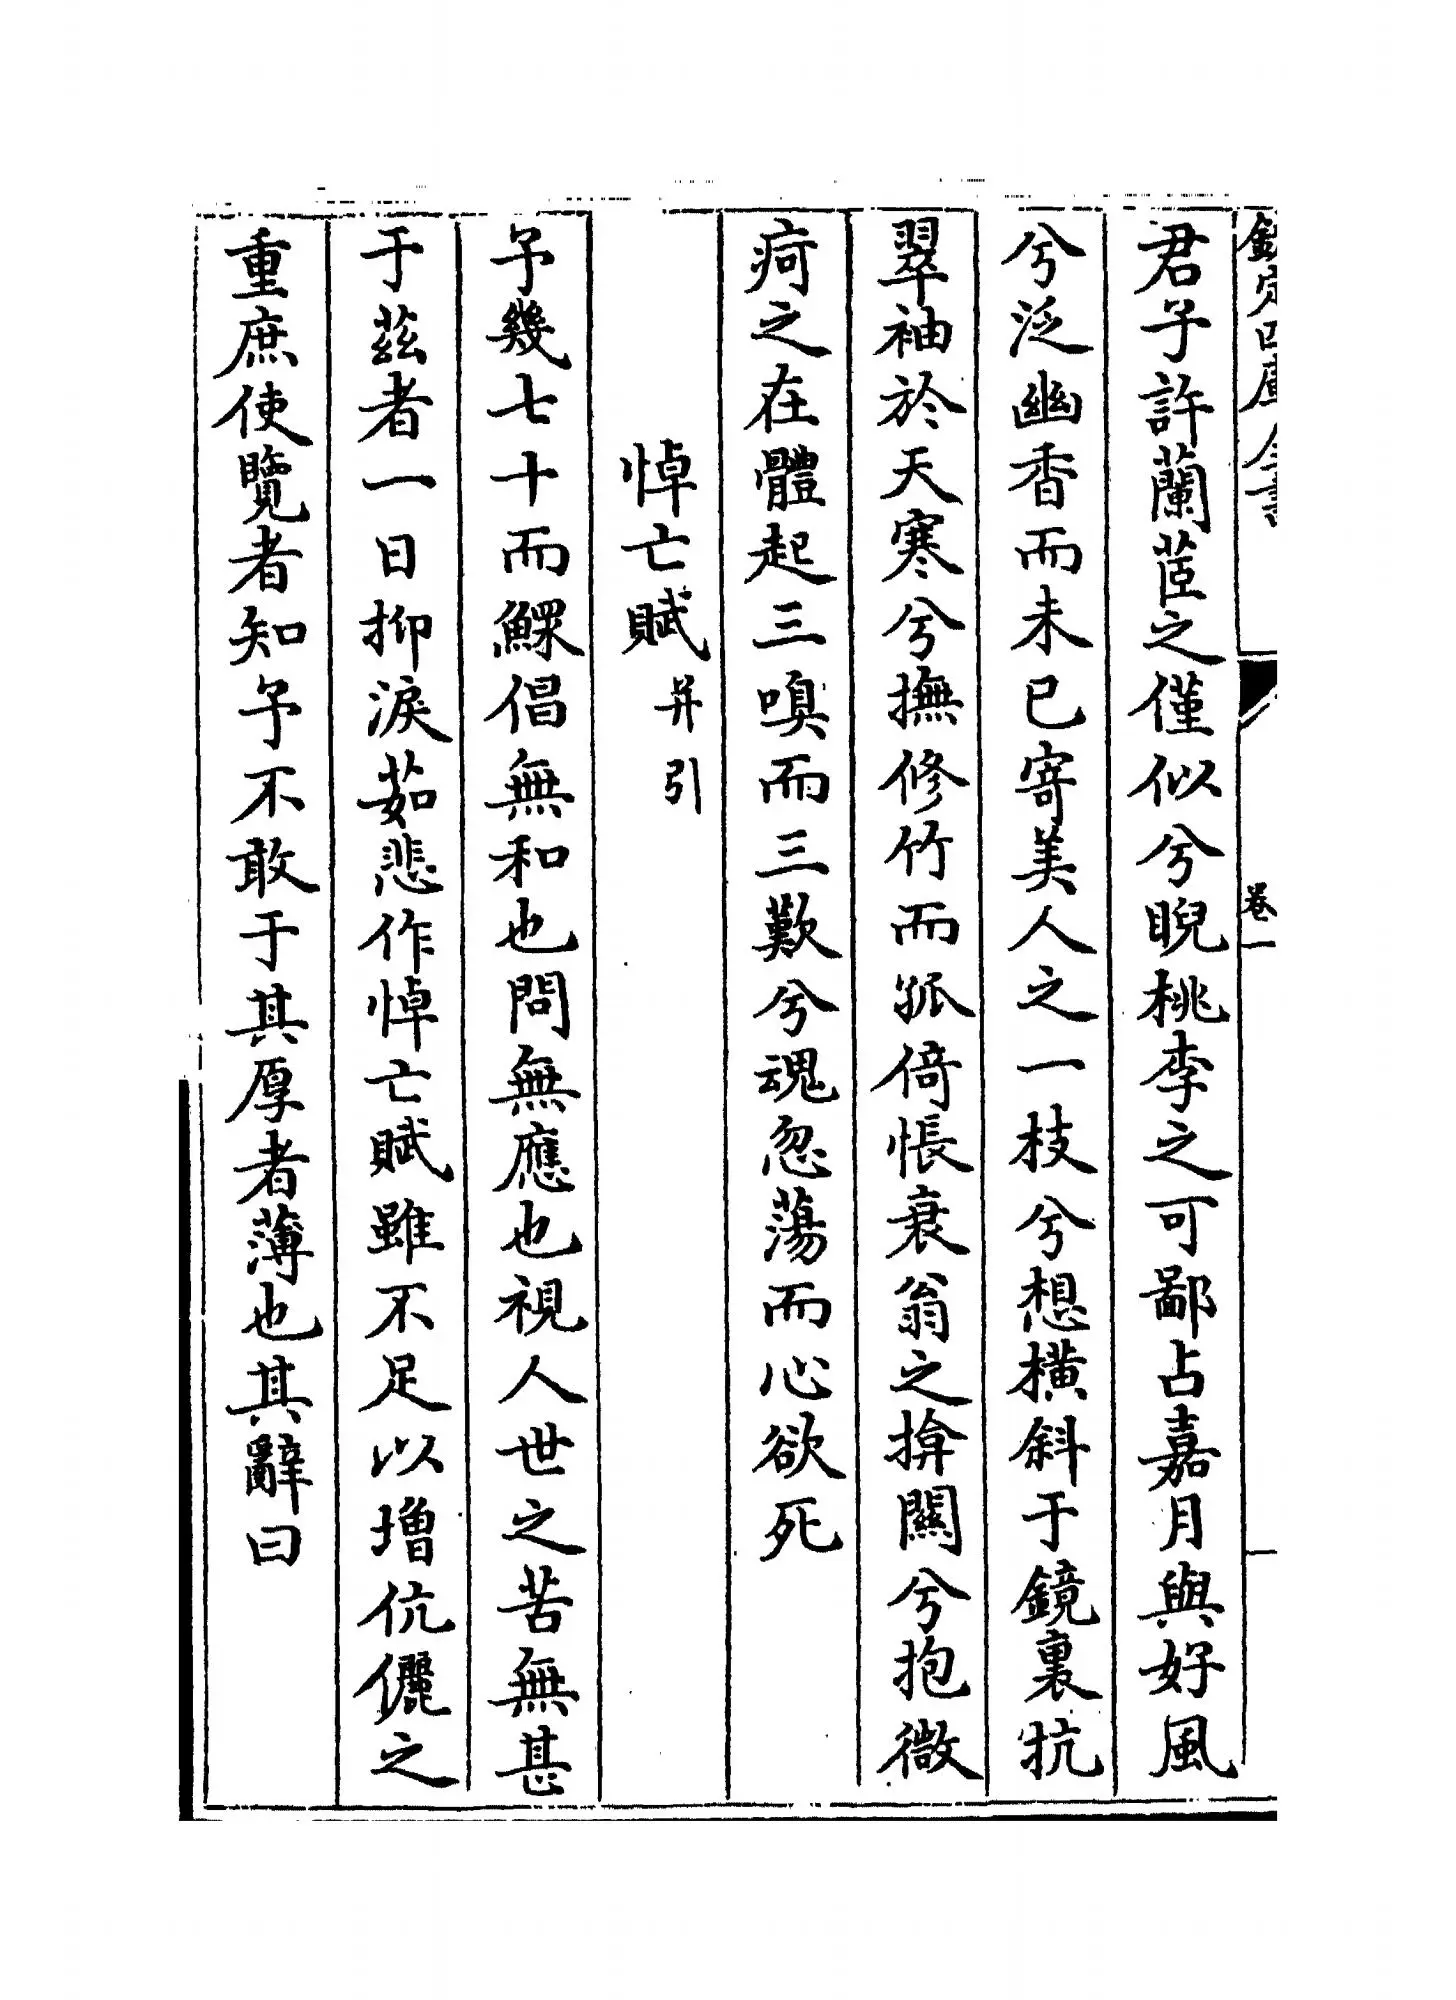 欽定四庫全書
卷一
君子許蘭茝之僅似兮睨桃李之可鄙占嘉月與好風
兮泛幽香而未已寄美人之一枝兮想横斜于鏡裏抗
翠袖於天寒兮撫修竹而孤倚悵衰翁之揜關兮抱微
疴之在體起三嗅而三歎兮魂忽蕩而心欲死
悼亡賦并引
予幾七十而鰥倡無和也問無應也視人世之苦無甚
于茲者一日抑淚茹悲作悼亡賦雖不足以增伉儷之
重庶使覽者知予不敢于其厚者薄也其辭曰